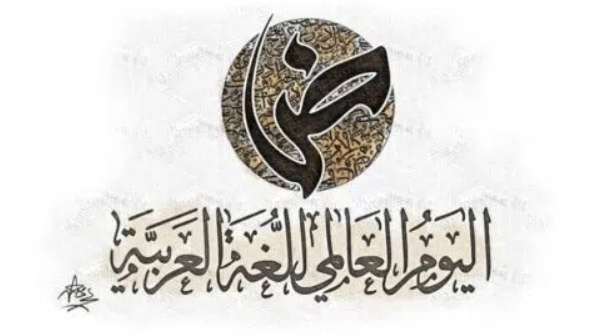 ض
اليَومُ العَالمي للُّغَة العَرَبيَّة